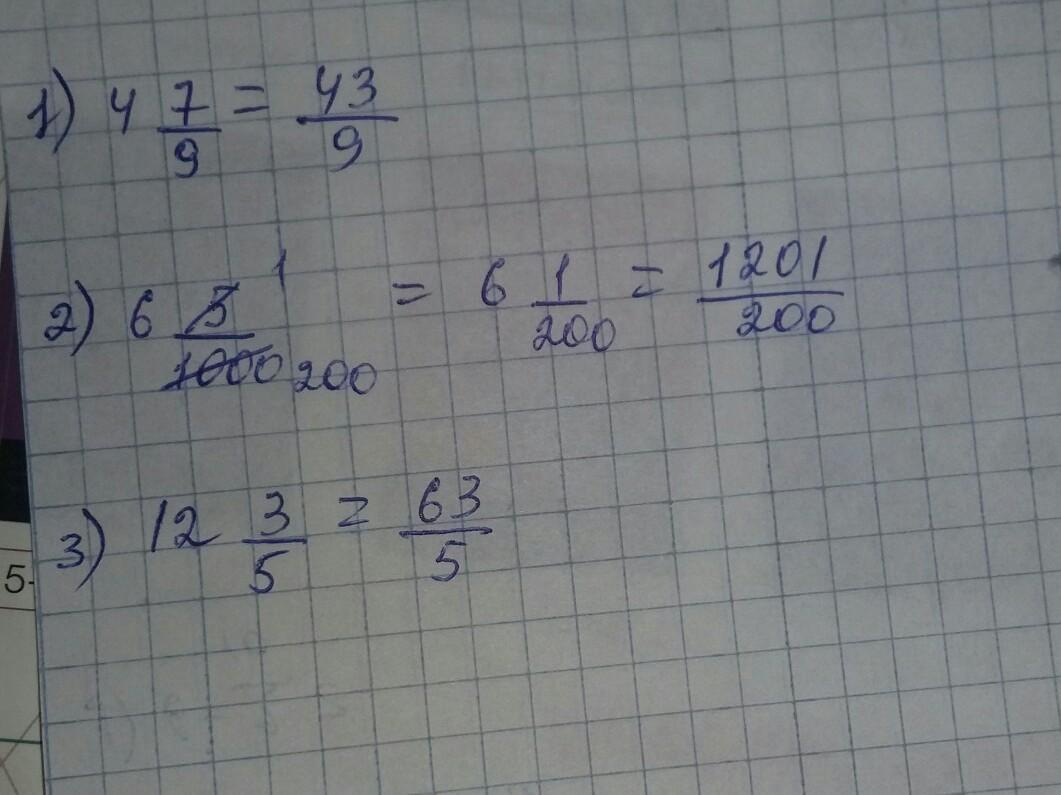 1) 4 7/9 = 43/9
2) 6 5/1000 1 200 = 6 1/200 = 1201/200
3) 12 3/5 = 63/5
5-